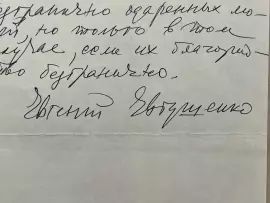 безгранично одаренных лю-
ей, но только в том
случае, если их благород-
ство безгранично.
Евгений Евтушенко